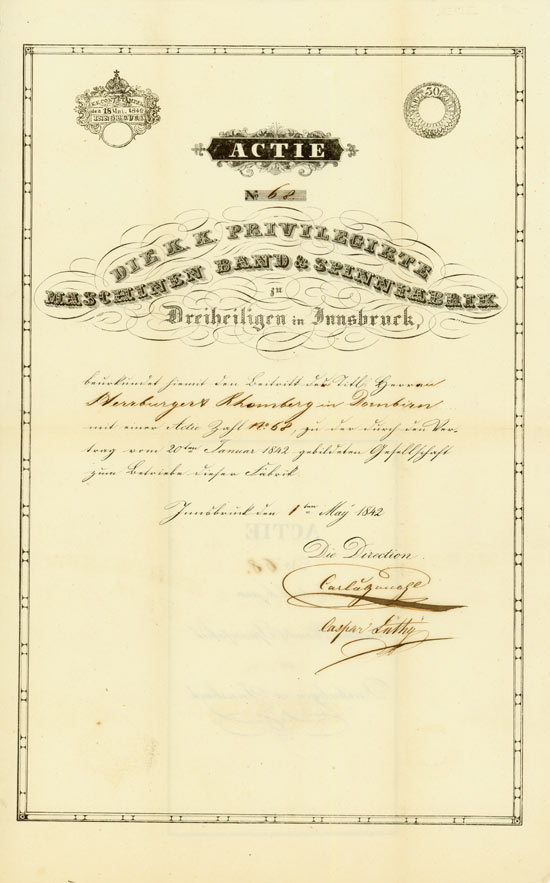 den 18 Mai 1842
INNSBRUCK
30
ACTIE
No 68.
DIE K. K. PRIVILEGIRTE
MASCHINEN BAND & SPINNFABRIK
zu
Dreiheiligen in Innsbruck,
beurkundet hiemit den Beitritt der Titl. Herren
Herrburger & Rhomberg in Dornbirn
mit einer Actie Zahl No 68, zu der durch den Ver-
trag vom 20ten Januar 1842 gebildeten Gesellschaft
zum Betriebe dieser Fabrik.
Innsbruck den 1ten May 1842
Die Direction.
Carl
Caspar Lüthy
ACTIE